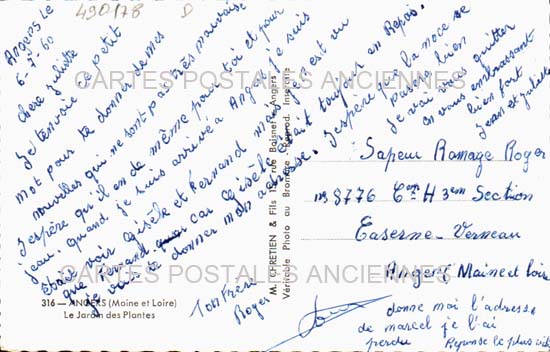 490/78 D
Angers Le
6-7-60
Chere Juliette
Je t'envoie ce petit
mot pour te donner de mes
nouvelles qui ne sont pas très mauvaise
J'espère qu'il en de même pour toi et pour
jean. quand je suis arrivé a Angers je suis
etait voir Gisèle et Fernand mes
que Fernand car Gisèle était toujour en Repos.
je vais te donner mon adresse. J'espère que la noce se
passer bien
Je vai vous quitter
en vous embrassant
bien fort
Jean et Juliette
Ton Frère
Roger
CARTES POSTALES ANCIENNES
CARTES POSTALES ANCIENNES
CARTES POSTALES ANCIENNES
M. CHRETIEN & Fils 12, rue Boisnet - Angers
Véritable Photo au Bromure - Reprod. Interdite
316 — ANGERS (Maine et Loire)
Le Jardin des Plantes
Sapeur Ramage Roger
8776 Cen H 3em Section
Caserne Verneau
Angers Maine et Loire
donne moi l'adresse
de marcel je l'ai
perdu Reponse le plus vite